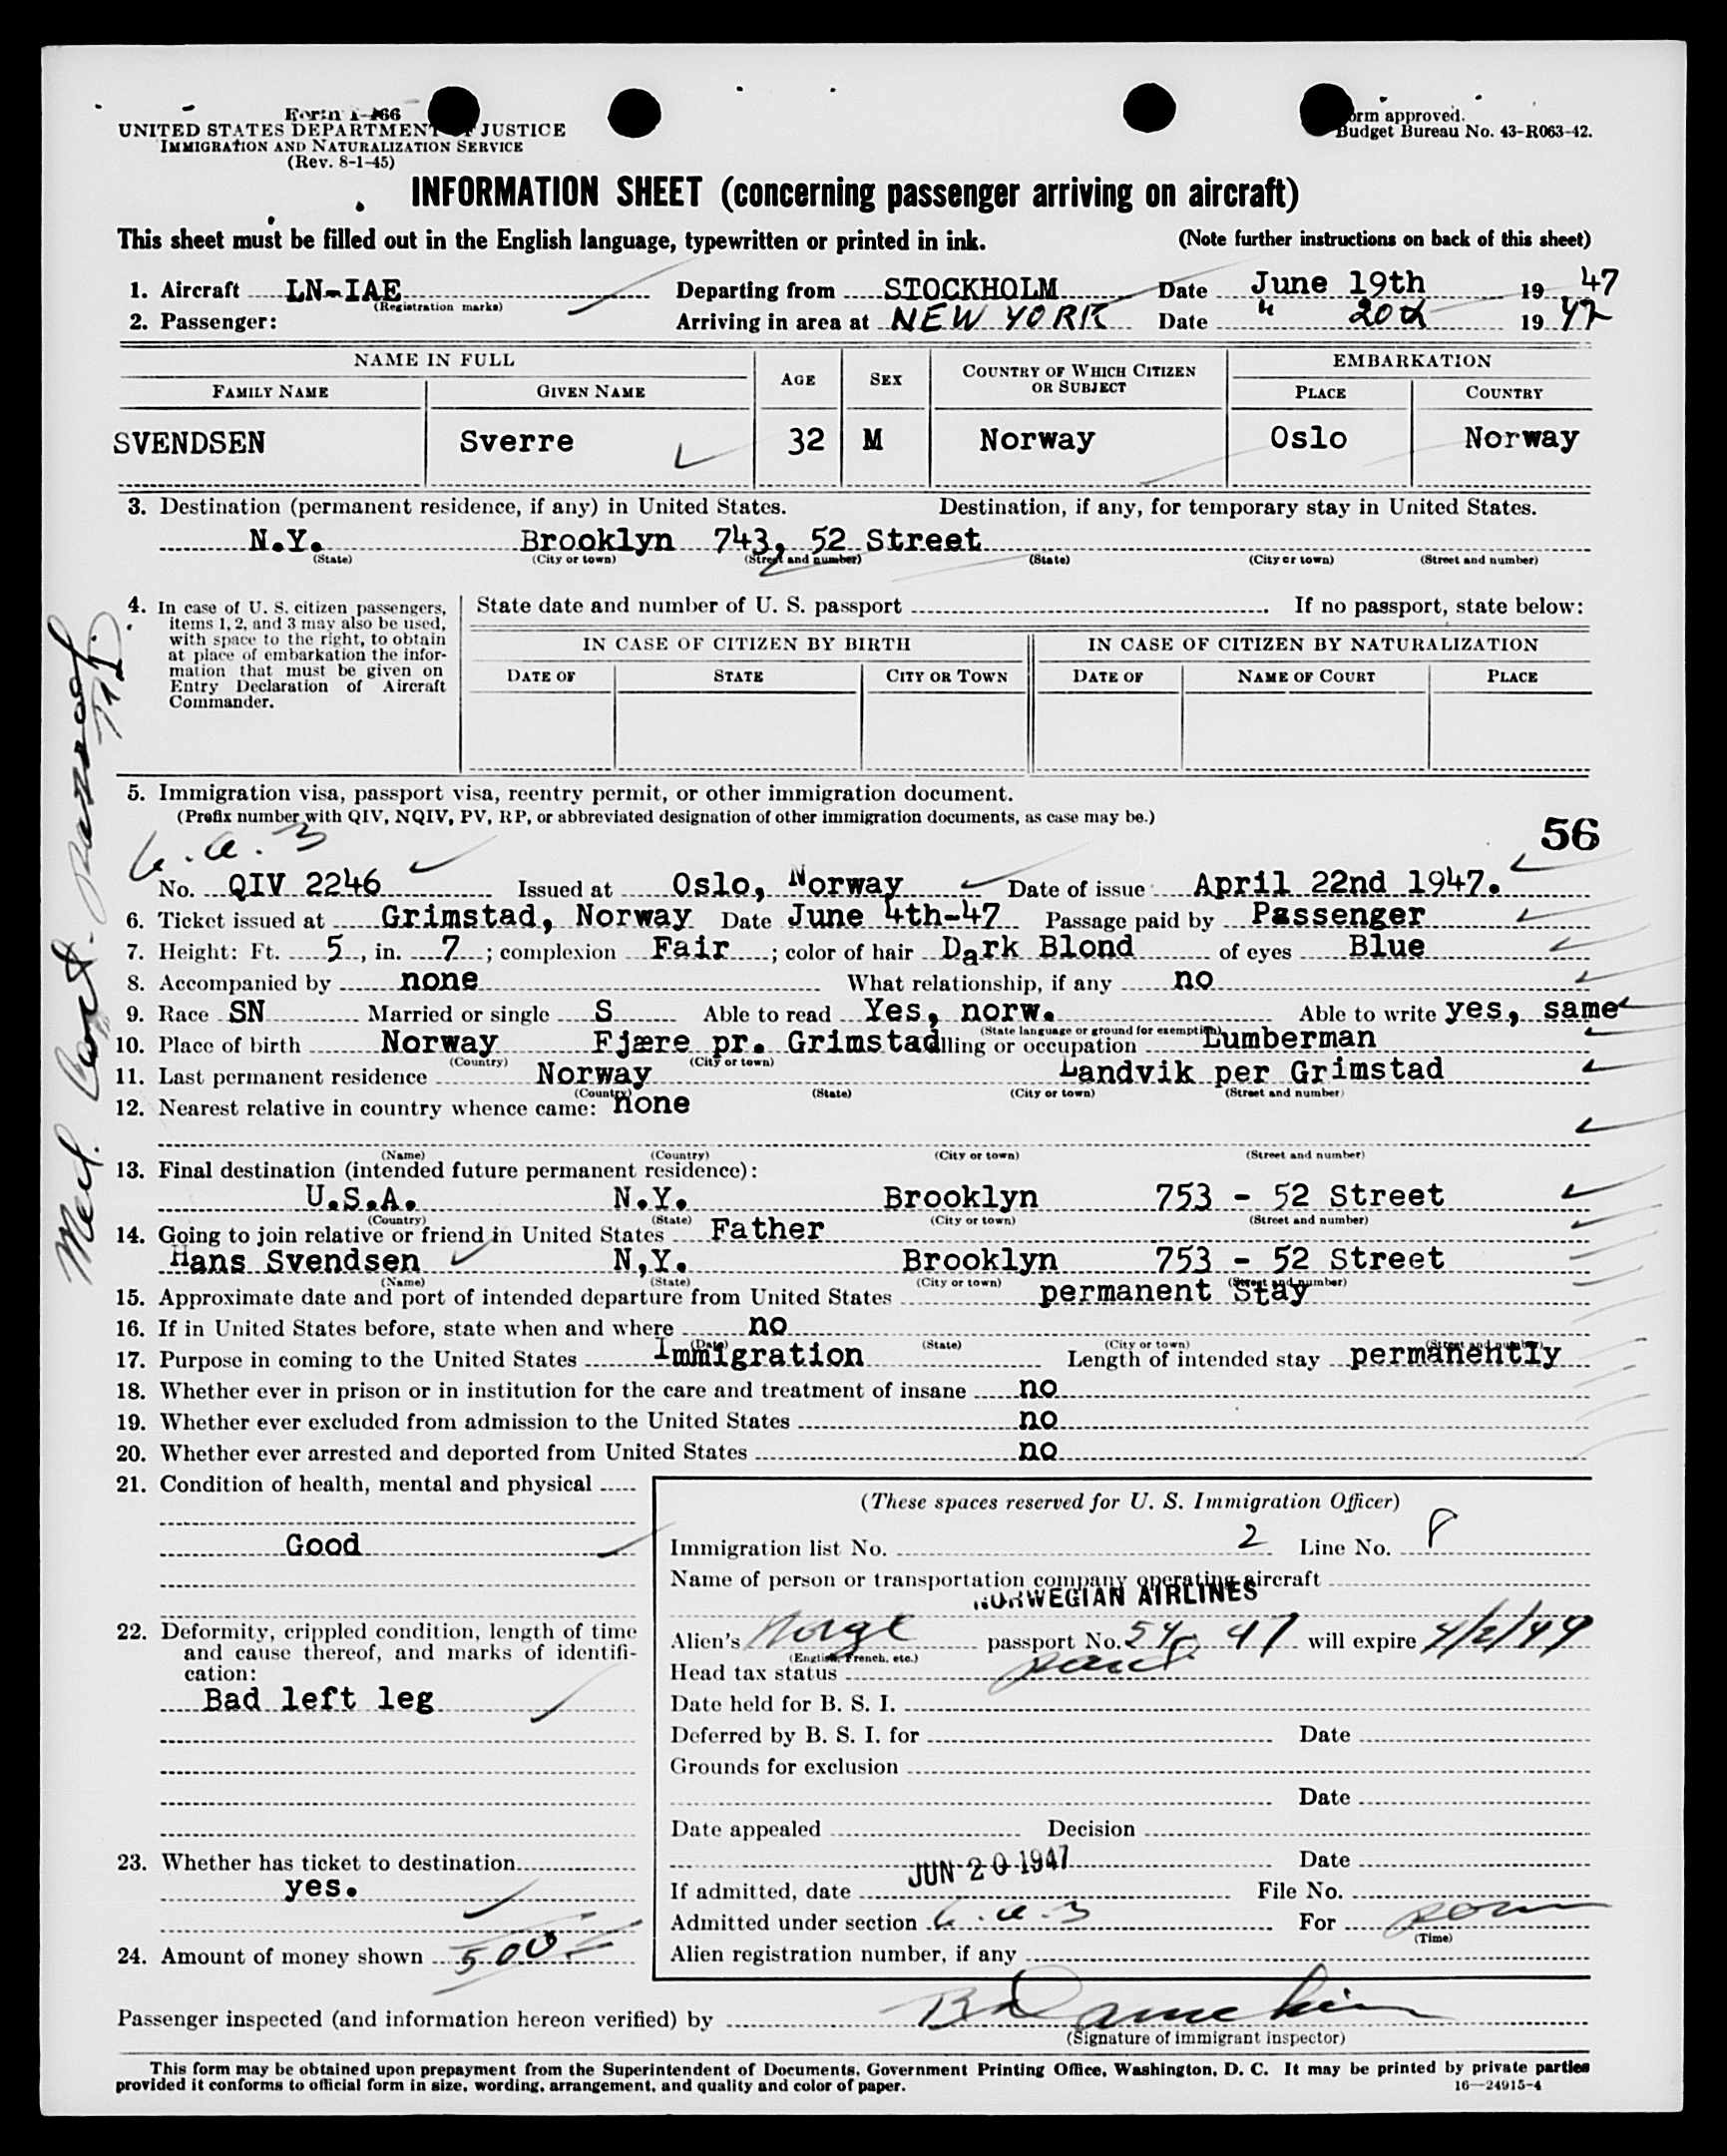 Form I-466
UNITED STATES DEPARTMENT OF JUSTICE
IMMIGRATION AND NATURALIZATION SERVICE
(Rev. 8-1-45)
Form approved.
Budget Bureau No. 43-R063-42.
INFORMATION SHEET (concerning passenger arriving on aircraft)
This sheet must be filled out in the English language, typewritten or printed in ink. (Note further instructions on back of this sheet)
1. Aircraft LN-IAE Departing from STOCKHOLM Date June 19th 1947
(Registration marks)
2. Passenger: Arriving in area at NEW YORK Date " 20th 1947
NAME IN FULL AGE SEX COUNTRY OF WHICH CITIZEN OR SUBJECT EMBARKATION
FAMILY NAME GIVEN NAME PLACE COUNTRY
SVENDSEN Sverre 32 M Norway Oslo Norway
3. Destination (permanent residence, if any) in United States. Destination, if any, for temporary stay in United States.
N.Y. Brooklyn 743, 52 Street
(State) (City or town) (Street and number) (State) (City or town) (Street and number)
4. In case of U. S. citizen passengers, items 1, 2, and 3 may also be used, with space to the right, to obtain at place of embarkation the information that must be given on Entry Declaration of Aircraft Commander.
State date and number of U. S. passport If no passport, state below:
IN CASE OF CITIZEN BY BIRTH IN CASE OF CITIZEN BY NATURALIZATION
DATE OF STATE CITY OR TOWN DATE OF NAME OF COURT PLACE
5. Immigration visa, passport visa, reentry permit, or other immigration document.
(Prefix number with QIV, NQIV, PV, RP, or abbreviated designation of other immigration documents, as case may be.)
56
No. QIV 2246 Issued at Oslo, Norway Date of issue April 22nd 1947.
6. Ticket issued at Grimstad, Norway Date June 4th-47 Passage paid by Passenger
7. Height: Ft. 5, in. 7; complexion Fair; color of hair Dark Blond of eyes Blue
8. Accompanied by none What relationship, if any no
9. Race SN Married or single S Able to read Yes, norw. Able to write yes, same
(State language or ground for exemption)
10. Place of birth Norway Fjære pr. Grimstad lling or occupation Lumberman
(Country) (City or town)
11. Last permanent residence Norway Landvik per Grimstad
(Country) (State) (City or town) (Street and number)
12. Nearest relative in country whence came: none
(Name) (Country) (City or town) (Street and number)
13. Final destination (intended future permanent residence):
U.S.A. N.Y. Brooklyn 753 - 52 Street
(Country) (State) (City or town) (Street and number)
14. Going to join relative or friend in United States Father
Hans Svendsen N,Y. Brooklyn 753 - 52 Street
(Name) (State) (City or town) (Street and number)
15. Approximate date and port of intended departure from United States permanent Stay
16. If in United States before, state when and where no
(Date) (State) (City or town) (Street and number)
17. Purpose in coming to the United States Immigration Length of intended stay permanently
18. Whether ever in prison or in institution for the care and treatment of insane no
19. Whether ever excluded from admission to the United States no
20. Whether ever arrested and deported from United States no
21. Condition of health, mental and physical
Good
22. Deformity, crippled condition, length of time and cause thereof, and marks of identification:
Bad left leg
23. Whether has ticket to destination
yes.
24. Amount of money shown 500
(These spaces reserved for U. S. Immigration Officer)
Immigration list No. 2 Line No. 8
Name of person or transportation company operating aircraft
NORWEGIAN AIRLINES
Alien's Norge passport No. will expire 4/2/49
(English, French, etc.)
Head tax status paid
Date held for B. S. I.
Deferred by B. S. I. for Date
Grounds for exclusion
Date
Date appealed Decision
Date
If admitted, date JUN 20 1947 File No.
Admitted under section For
(Time)
Alien registration number, if any
Passenger inspected (and information hereon verified) by
(Signature of immigrant inspector)
This form may be obtained upon prepayment from the Superintendent of Documents, Government Printing Office, Washington, D. C. It may be printed by private parties
provided it conforms to official form in size, wording, arrangement, and quality and color of paper. 16—24915-4
Med. Cert.